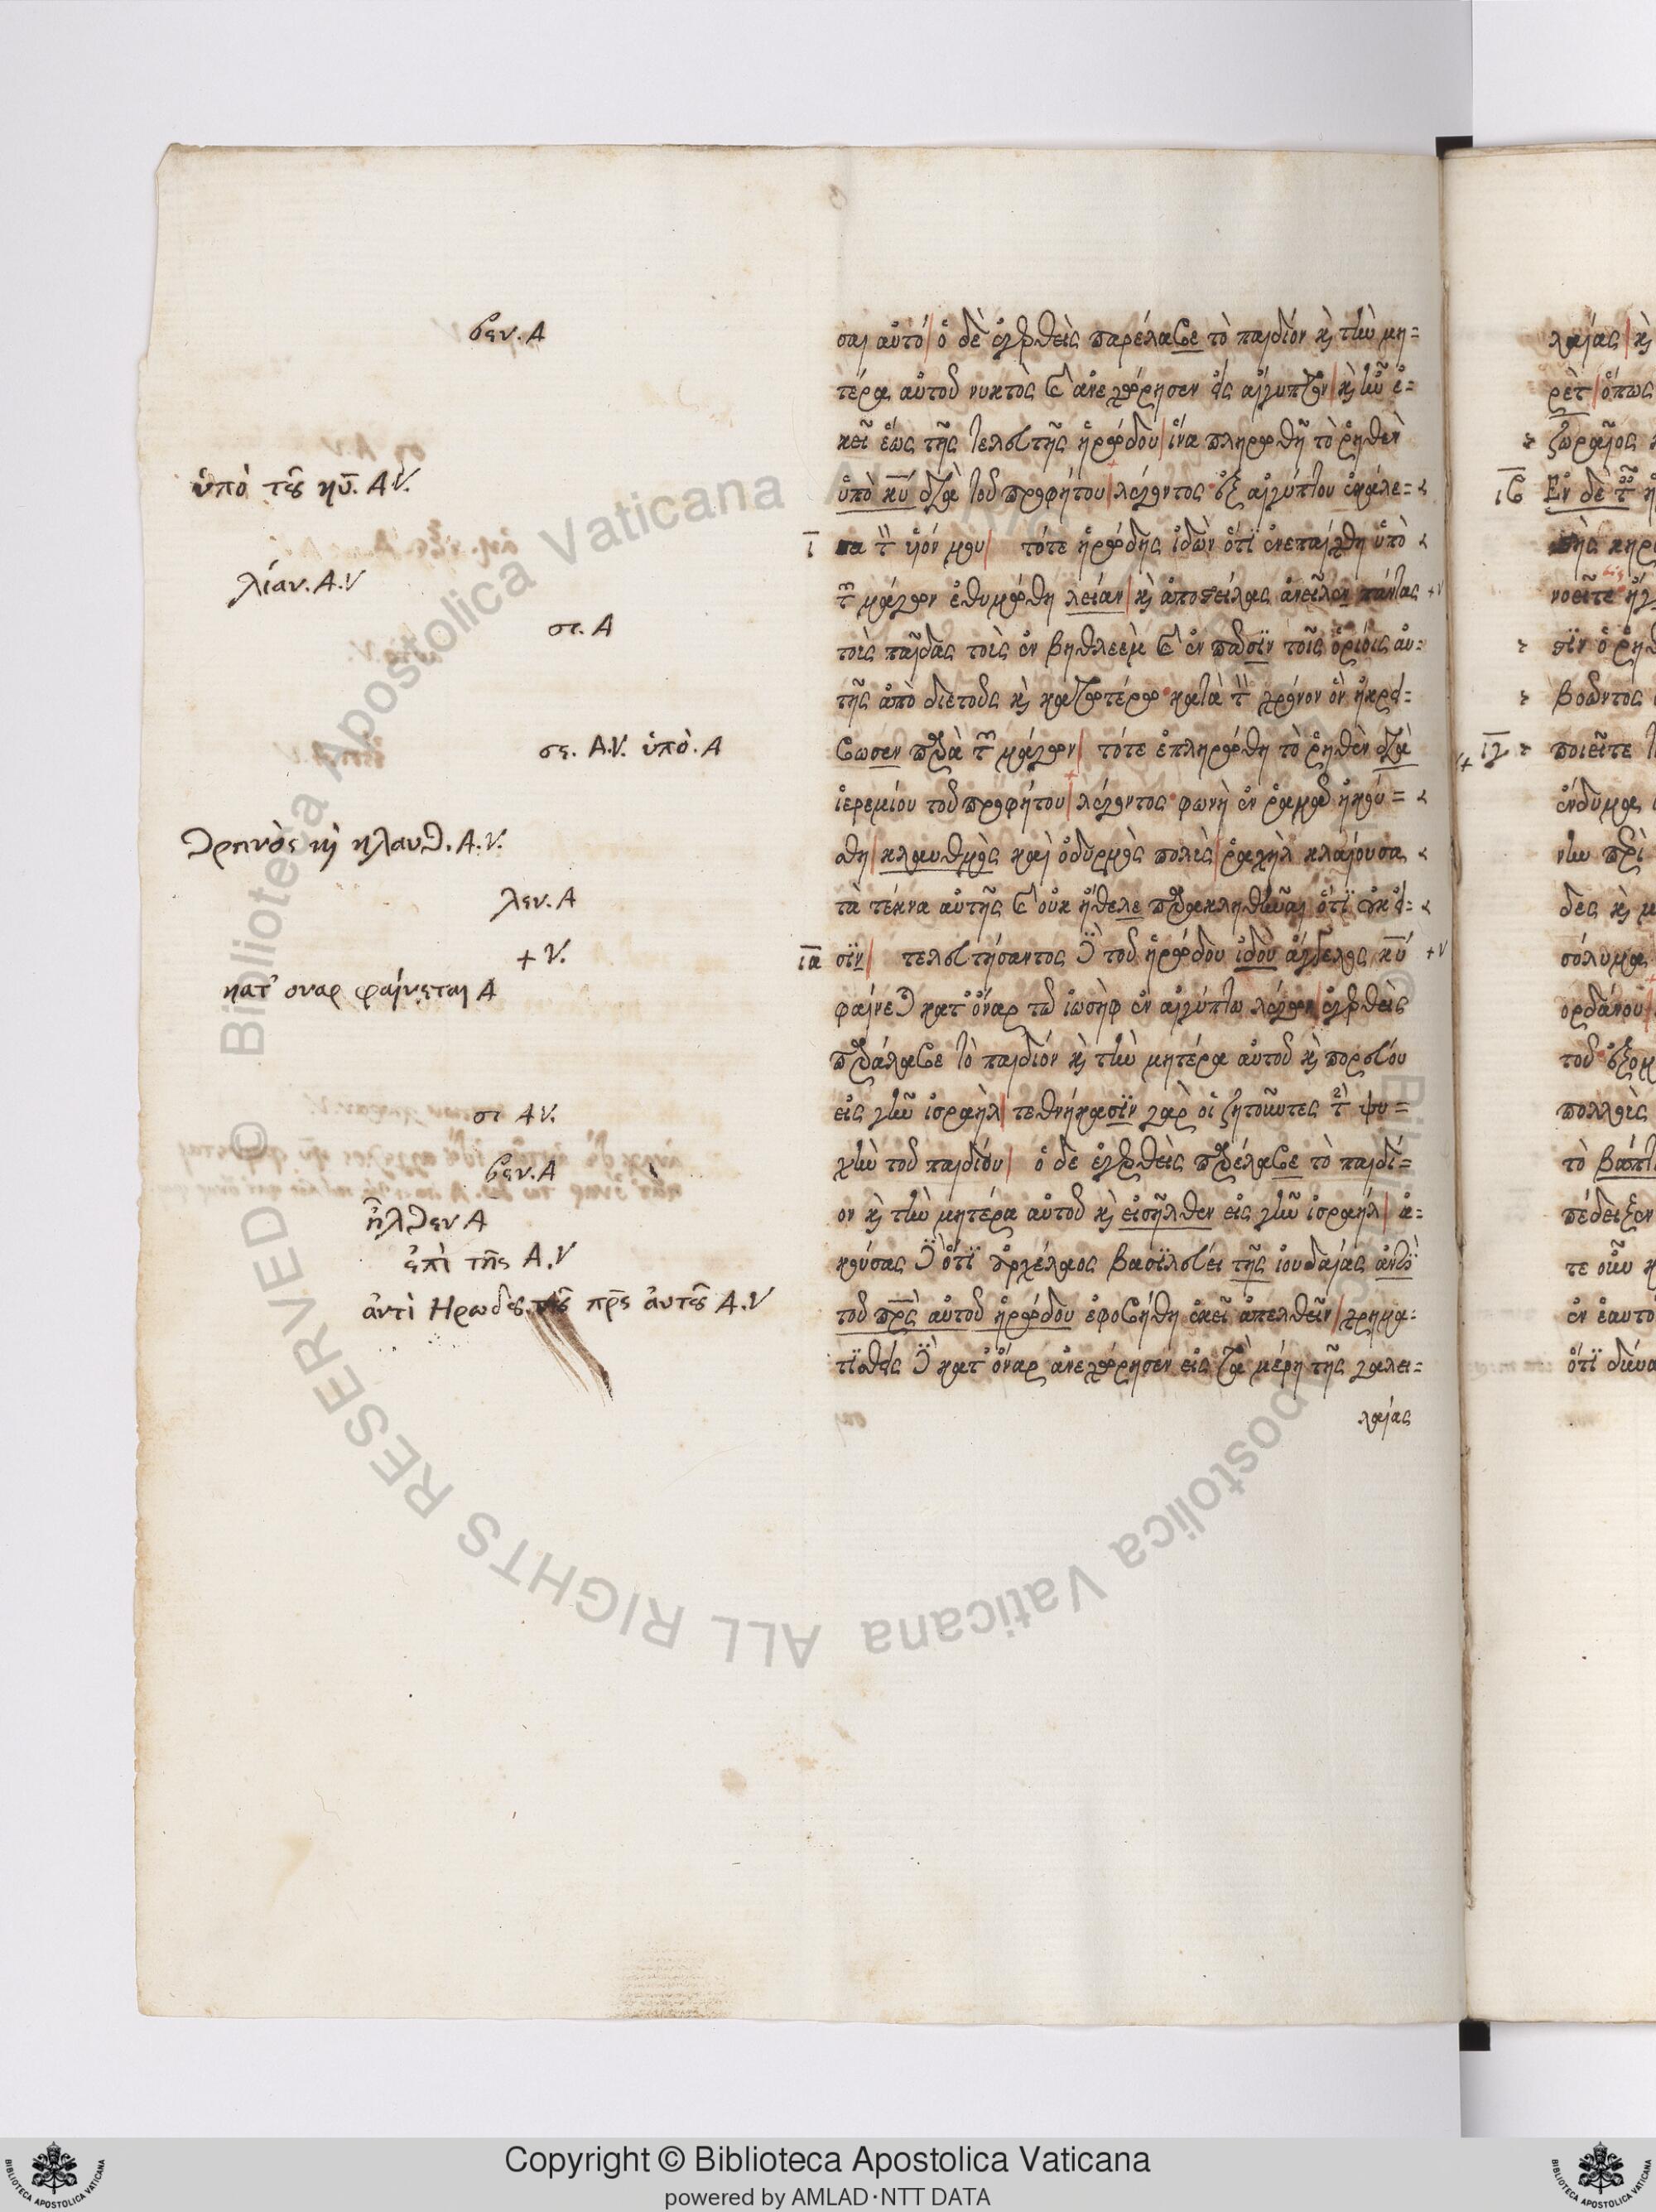 βεν. Α
ὑπὸ τȣ͂ κ̅υ̅. Α.V.
λίαν. Α.V
σι. Α
σε. Α.V. ὑπὸ. Α
θρηνὸς κὶ κλαυθ. Α.V.
λεν. Α
+ V.
κατ᾽ οναρ φαίνεται Α
σι ΑV.
βεν. Α
ἦλθεν Α
ἐπὶ τῆς Α.V
ἀντὶ Ηρωδȣ πρ̅ς ἀυτȣ͂ Α.V
σαι αὐτό ὁ δὲ ἐγερθεὶς παρέλαβε τὸ παιδίον κὶ τὴν μη=
τέρα αὐτοῦ νυκτὸς κὶ ἀνεχώρησεν εἰς αἴγυπτον κὶ ἦν ἐ=
κεῖ ἕως τῆς τελευτῆς ἡρώδου ἵνα πληρωθῆ τὸ ῥηθὲν
ὑπὸ κ̅υ̅ διὰ τοῦ προφήτου λέγοντος ἐξ αἰγύπτου ἐκάλε=
ι̅ σα τὸν υἱόν μου τότε ἡρώδης ἰδὼν ὅτϊ ἐνεπαίχθη ὑπὸ
τῶν μάγων ἐθυμώθη λείαν κὶ ἀποστείλας ἀνεῖλεν πάντας +V
τοὺς παῖδας τοὺς ἐν βηθλεὲμ κὶ ἐν πᾶσϊν τοῖς ὁρίοις αὐ=
τῆς ἀπὸ διετοῦς κὶ κατωτέρω κατὰ τὸν χρόνον ὃν ἠκρί=
βωσεν παρὰ τῶν μάγων τότε ἐπληρώθη τὸ ῥηθὲν διὰ
ἱερεμίου τοῦ προφήτου λέγοντος φωνὴ ἐν ῥαμᾶ ἠκού=
σθη κλαυθμὸς καὶ ὀδυρμὸς πολὺς ῥαχὴλ κλαίουσα
τὰ τέκνα αὐτῆς κὶ οὐκ ἤθελε παρακληθῆναι ὅτϊ οὐκ εἰ=
ι̅α̅ σϊν τελευτήσαντος δὲ τοῦ ἡρώδου ἰδοὺ ἄγγελος κ̅υ̅ +V
φαίνεται κατ᾽ ὄναρ τῶ ἰωσὴφ ἐν αἰγύπτω λέγων ἐγερθεὶς
παράλαβε τὸ παιδίον κὶ τὴν μητέρα αὐτοῦ κὶ πορεύου
εἰς γῆν ἰσραὴλ τεθνήκασϊν γὰρ οἱ ζητοῦντες τὴν ψυ=
χὴν τοῦ παιδίου ὁ δὲ ἐγερθεὶς παρέλαβε τὸ παιδί=
ον κὶ τὴν μητέρα αὐτοῦ κὶ εἰσῆλθεν εἰς γῆν ἰσραήλ ἀ=
κούσας δὲ ὅτϊ ἀρχέλαος βασϊλεύει τῆς ἰουδαίας ἀντϊ
τοῦ πρ̅ς αὐτοῦ ἡρώδου ἐφοβήθη ἐκεῖ ἀπελθεῖν χρημα=
τϊσθεὶς δὲ κατ᾽ ὄναρ ἀνεχώρησεν εἰς τὰ μέρη τῆς γαλει=
λαίας
λαίας κὶ
ρὲτ ὅπως
ζωραῖος
ι̅β̅ Ἐν δὲ
νοεῖτε
βοῶντος
ι̅γ̅ ποιεῖτε
ἔνδυμα
σόλυμα
ορδάνου
πολλοὺς
τὸ βάπτι
πέδειξεν
τε οὖν
ἐν ἑαυτο
ὅτϊ δύνα
© Biblioteca Apostolica Vaticana ALL RIGHTS RESERVED
Copyright © Biblioteca Apostolica Vaticana
powered by AMLAD·NTT DATA
BIBLIOTECA APOSTOLICA VATICANA
BIBLIOTECA APOSTOLICA VATICANA